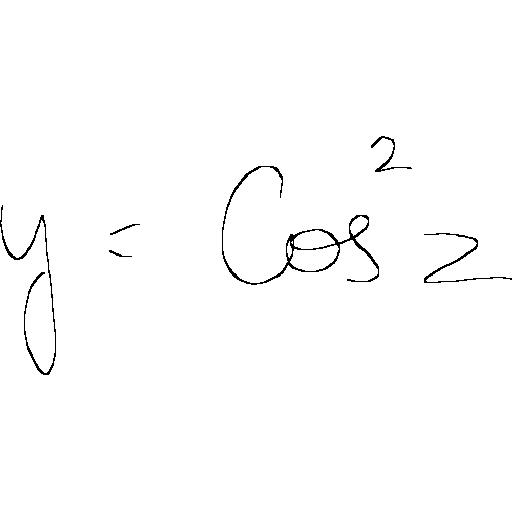 y = Cos² z